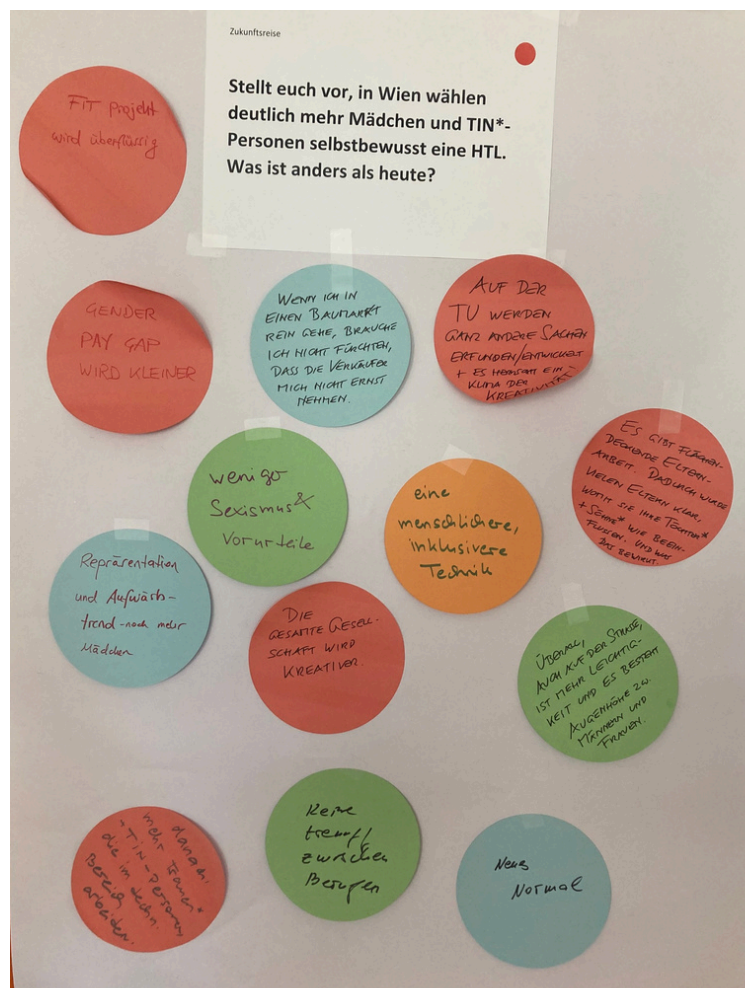 Zukunftsreise
Stellt euch vor, in Wien wählen
deutlich mehr Mädchen und TIN*-
Personen selbstbewusst eine HTL.
Was ist anders als heute?
FIT Projekt
wird überflüssig
GENDER
PAY GAP
WIRD KLEINER
WENN ICH IN
EINEN BAUMARKT
REIN GEHE, BRAUCHE
ICH NICHT FÜRCHTEN,
DASS DIE VERKÄUFER
MICH NICHT ERNST
NEHMEN.
AUF DER
TU WERDEN
GANZ ANDERE SACHEN
ERFUNDEN/ENTWICKELT
+ ES HERRSCHT EIN
KLIMA DER
KREATIVITÄT
weniger
Sexismus &
Vorurteile
eine
menschlichere,
inklusivere
Technik
ES GIBT FLÄCHEN-
DECKENDE ELTERN-
ARBEIT. DADURCH WURDE
VIELEN ELTERN KLAR,
WOMIT SIE IHRE TÖCHTER*
+ SÖHNE* WIE BEEIN-
FLUSSEN. UND WAS
DAS BEWIRKT.
Repräsentation
und Aufwärts-
trend - noch mehr
Mädchen
DIE
GESAMTE GESELL-
SCHAFT WIRD
KREATIVER.
ÜBERALL,
AUCH AUF DER STRASSE,
IST MEHR LEICHTIG-
KEIT UND ES BESTEHT
AUGENHÖHE ZW.
MÄNNERN UND
FRAUEN.
danach:
mehr Frauen*
-TIN-Personen
die im techn.
Bereich
arbeiten.
Keine
zwischen
Berufen
Neues
Normal